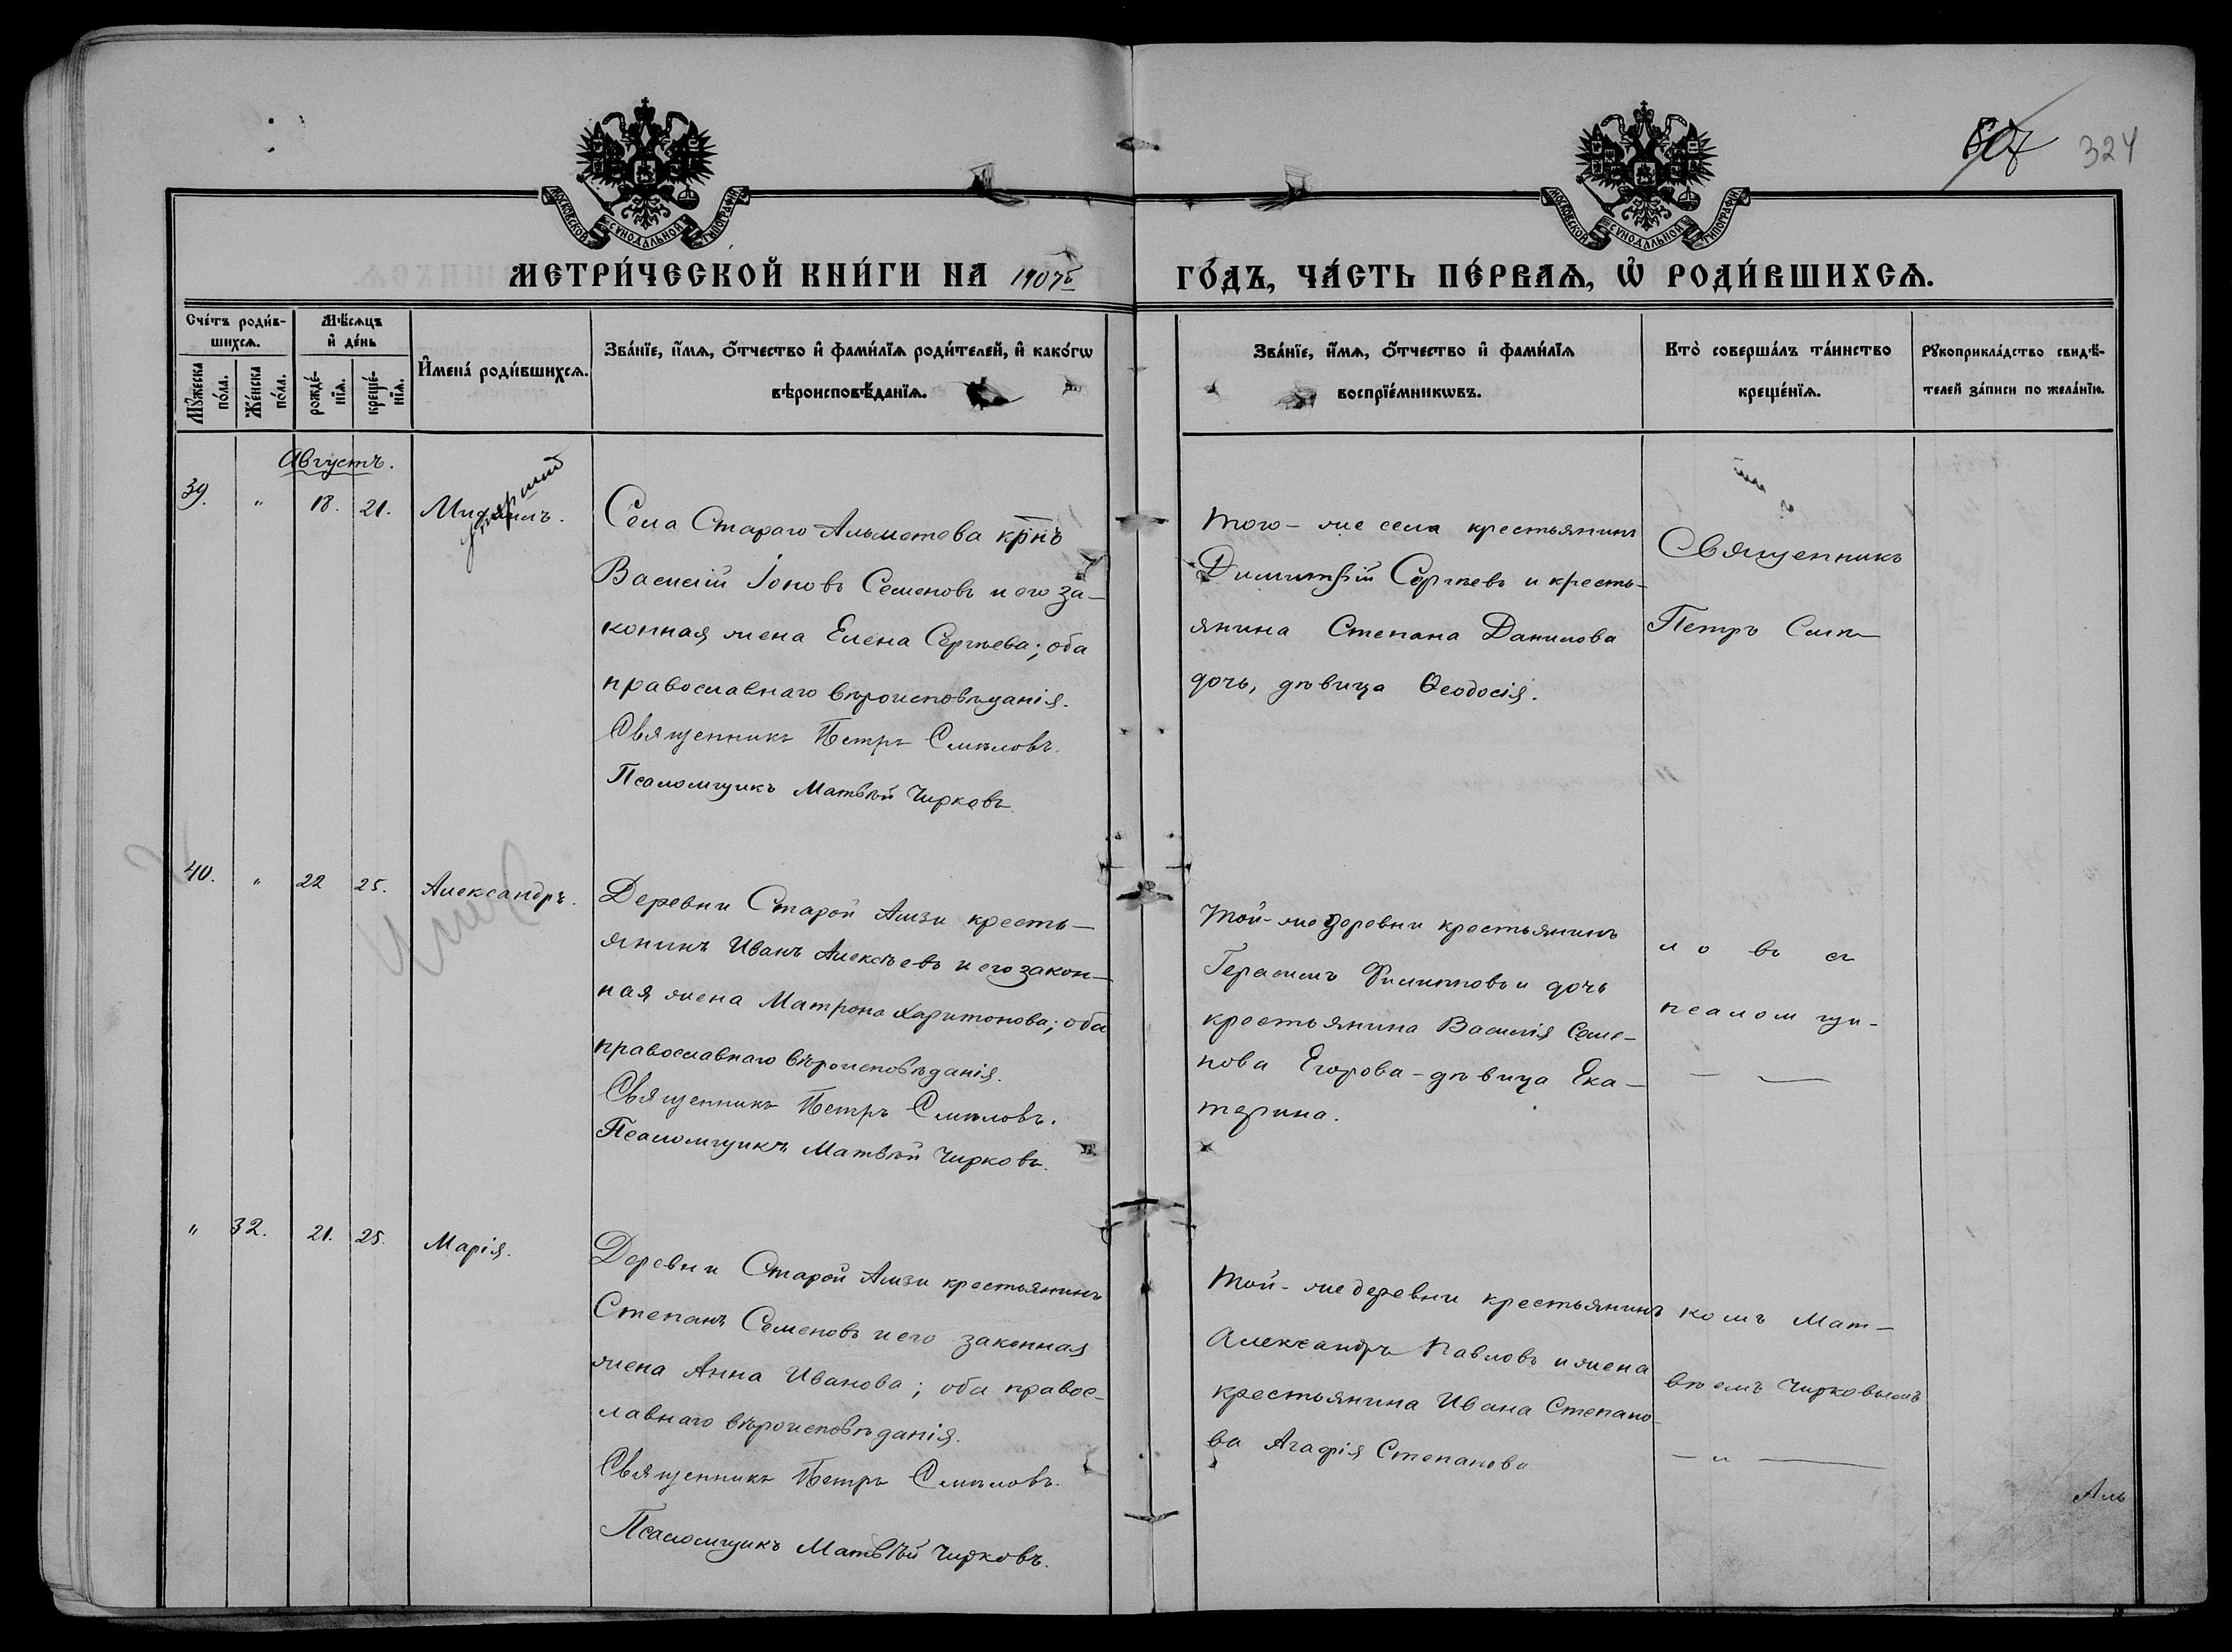 807 324
МОСКОВСКОЙ СѴНОДАЛЬНОЙ ТИПОГРАФІИ
МОСКОВСКОЙ СѴНОДАЛЬНОЙ ТИПОГРАФІИ
МЕТРИ́ЧЕСКОЙ КНИ́ГИ НА 1907й
ГО́ДЪ, ЧА́СТЬ ПЕ́РВАѦ, Ѡ҆ РОДИ́ВШИХСѦ.
Сче́тъ роди́в-
шихсѧ.
Мꙋ́жеска по́ла.
Же́нска по́ла.
Мѣ́сѧцъ
и҆ де́нь
рожде́-
нїѧ.
креще́-
нїѧ.
И҆мена́ роди́вшихсѧ.
Зва́нїе, и҆́мѧ, ѻ҆́тчество и҆ фами́лїѧ роди́телей, и҆ како́гѡ
вѣроисповѣ́данїѧ.
Зва́нїе, и҆́мѧ, ѻ҆́тчество и҆ фами́лїѧ
воспрїе́мникѡвъ.
Кто̀ соверша́лъ та́инство
креще́нїѧ.
Рꙋкоприкла́дство свидѣ́-
телей за́писи по жела́нїю.
Августъ.
39. " 18. 21. Михаилъ.
умерший
Села Стараго Альметева крнъ
Василій Іоновъ Семеновъ и его за-
конная жена Елена Сергѣева; оба
православнаго вѣроисповѣданія.
Священникъ Петръ Смѣловъ.
Псаломщикъ Матвѣй Чирковъ.
Того-же села крестьянинъ
Димитрій Сергѣевъ и кресть-
янина Степана Данилова
дочь, дѣвица Ѳеодосія.
Священникъ
Петръ Смѣ-
40. " 22 25. Александръ.
Деревни Старой Амзи кресть-
янинъ Иванъ Алексѣевъ и его закон-
ная жена Матрона Харитонова; оба
православнаго вѣроисповѣданія.
Священникъ Петръ Смѣловъ.
Псаломщикъ Матвѣй Чирковъ.
Той-же деревни крестьянинъ
Герасимъ Филипповъ и дочь
крестьянина Василія Семе-
нова Егорова - дѣвица Ека-
терина.
ловъ съ
псаломщи-
" 32. 21. 25. Марія.
Деревни Старой Амзи крестьянинъ
Степанъ Семеновъ и его законная
жена Анна Иванова; оба правос-
лавнаго вѣроисповѣданія.
Священникъ Петръ Смѣловъ.
Псаломщикъ Матвѣй Чирковъ.
Той-же деревни крестьянинъ
Александръ Павловъ и жена
крестьянина Ивана Степано-
ва Агафія Степанова
комъ Мат-
вѣемъ Чирковымъ
— " —
Аль